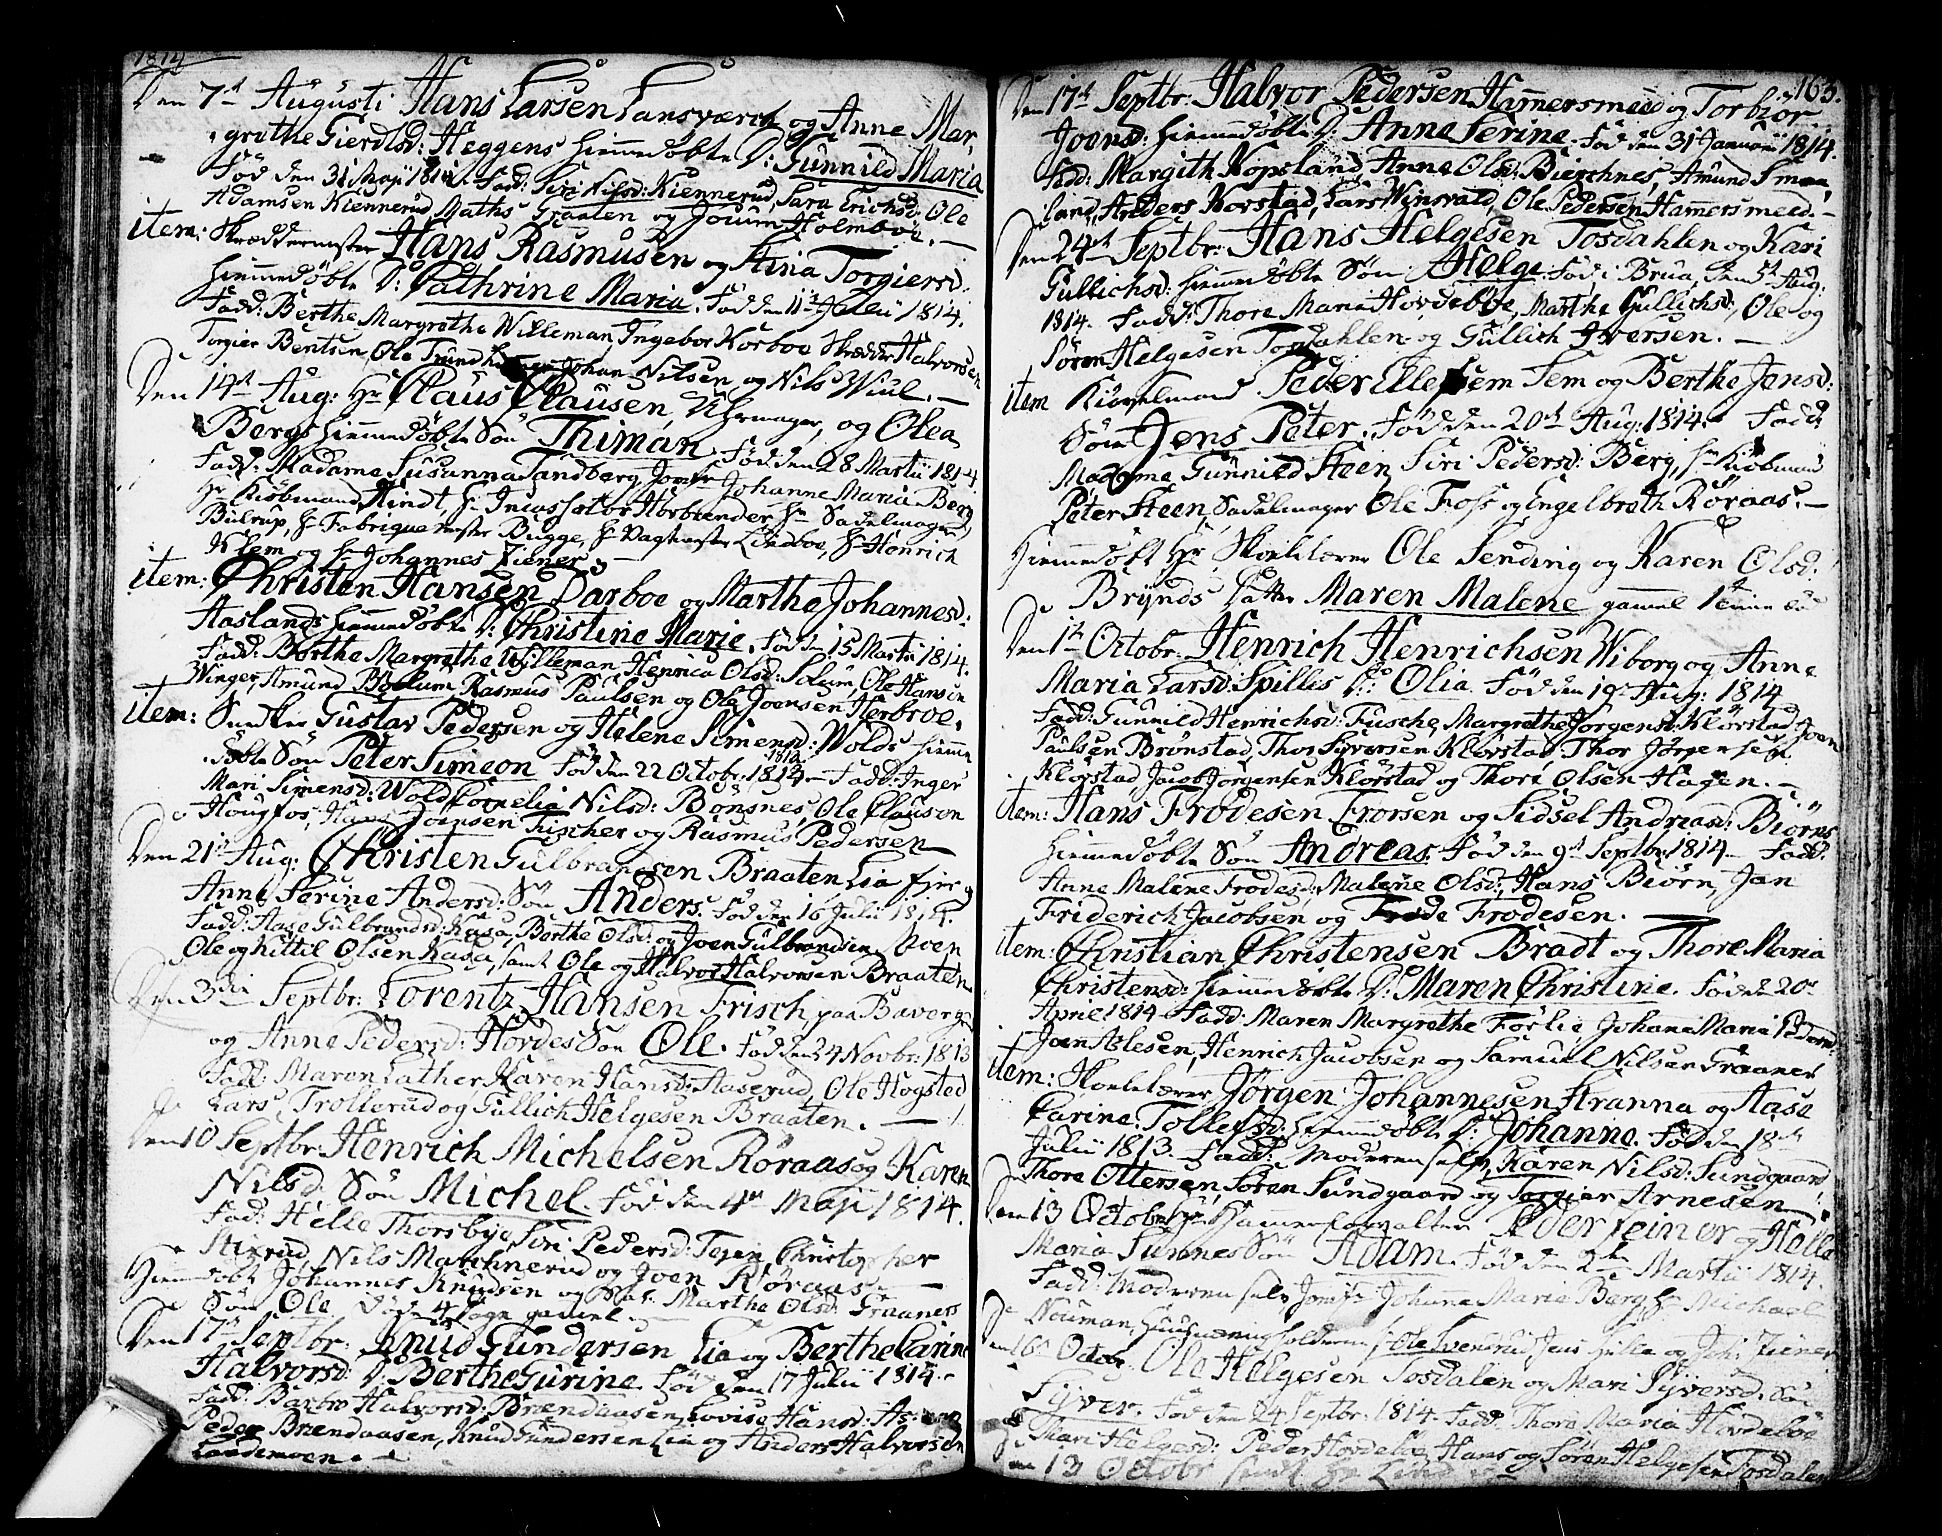 1814
Den 7de Augusti Hans Larsen Lansværch og Anne Mar,
grethe Gierdsd: Heggens hiemmedøbte D: Gunnild Maria
Fød den 31 Maji 1814. Fadd: Siri Nilsd: Kiennerud, Sara Erichsd, Ole
Adamsen Kiennerud, Maths Graaten og Joen Holmboe. —
item: Skreddermester Hans Rasmusen og Stina Torgiersd:
hiemmedøbte D: Cathrine Maria. Fød den 11te Julii 1814.
Fadd: Berthe Margrethe Willeman, Ingebor Korboe Skredder Halvorsen
Torgier Bentsen, Ole Johan Nilsen, og Nils Wiul. —
Den 14de Aug: Hr Claus Clausen, Uhrmager, og Olea
Bergs hiemmedøbte Søn Thiman. Fød den 28 Martii 1814.
Fadd: Madame Susanna Sandberg, Jomfr Johanne Maria Berg
Hr Kiøbmand Hindt, Hr Incassator Horbrender, Hr Sadelmager
Bulrup, Hr Fabriquemester Bugge, Hr Vagtmester Lindboe, Hr Henrich
Klem og Hr Johannes Ziener. —
item: Christen Hansen Darboe og Marthe Johannesd:
Aaslands hiemmedøbte D: Christine Marie. Fød den 15 Martii 1814.
Fadd: Berthe Margrethe Willeman Henrica Olsd: Solum, Ole Hansen
Winger, Amund Bollum, Rasmus Paulsen og Ole Joensen Herbroe.
item: Gustav Pedersen og Helene Simensd: Wolds hiemme
døbte Søn Peter Simeon Fød den 22 Octobr: 1812. Fadd: Inger
Mari Simensd: Wold, Cornelia Nilsd: Bønsnes, Ole Clausen
Hougfos, Hans Joensen Fischer og Rasmus Pedersen —
Den 21de Aug: Christen Gulbrandsen Braaten Lia og
Anne Serine Andersd: Søn Anders. Fød den 16 Julii 1814.
Fadd: Aase Gulbrandsd: Kasa, Berthe Olsd: og Joen Gulbrandsen Moen
Ole og Kittil Olsen Kasa, samt Ole og Halvor Halvorsen Braaten
Den 3die Septbr: Lorentz Hansen Frisch, paa Baverg
og Anne Pedersd: Hordes Søn Ole. Fød den 24 Novbr: 1813
Fadd: Maren Cather Karen Hansd: Aaserud, Ole Hogsted
Lars Trollerud og Gullich Helgesen Braaten. —
Den 10 Septbr: Henrich Michelsen Røraas og Karen
Nilsd: Søn Michel. Fød den 4de Maji 1814.
Fad: Helle Thorsbye, Siri Pedersd: Teien, Christopher
Stixrud, Nils Marchnerud og Joen Røraas. —
Hiemedøbt Johannes Knudsen og Marthe Olsd: Graanes
Søn Ole. Døde 4 Dage gamel. —
Den 17de Septbr: Knud Gundersen Lia og Berthe Carine
Halvorsd: D: Berthe Gurine. Fød den 17 Julii 1814. —
Fadd: Barbro Halvorsd: Brendaasen, Lovise Hansd:
Peder Brendaasen, Knud Gundersen Lia og Anders Halvorsen
Laademoen. —
163.
Den 17de Septbr: Halvor Pedersen Hammersmeed og Torbiør
Joensd: hiemmedøbte D: Anne Serine. Fød den 31 Januarii 1814.
Fadd: Margith Kopsland, Anne Olsd: Bierchnes, Amund Smaa,
land, Anders Korstad, Lars Winsvald, Ole Pedersen Hammersmeed. —
Den 24de Septbr: Hans Helgesen Tosdahlen og Kari
Gullichsd: hiemmedøbte Søn Helge. Fød i Brua, den 5te Aug:
1814. Fadd: Thore Maria Hovdeboe, Marthe Gullichsd:, Ole og
Søren Helgesen Tosdahlen og Gullich Iversen. —
item Kiørelmand Peder Ellefsen Sem og Berthe Jensd:
Søn Jens Peter. Fød den 20de Aug: 1814. Fadd:
Madame Gunnild Steen, Siri Pedersd: Berg, Hr Kiøbmand
Peter Steen, Sadelmager Ole Foss og Engelbreth Røraas. —
Hiemmedøbt Hr Skolelærer Ole Sending og Karen Olsd:
Brynds Datter Maren Malene gammel 1 time
Den 1te Octobr: Henrich Henrichsen Wiborg og Anne
Maria Larsd: Spilles D: Olia. Fød den 19 Aug: 1814
Fadd: Gunnild Henrichsd: Fusche, Margrethe Jørgensd: Klørstad, Joen
Paulsen Brønstad, Thor Syversen Klørstad, Thor Jørgensen
Klørstad, Jacob Jørgensen Klørstad og Thori Olsen Hagen. —
item: Hans Frodesen Frorsen og Sidsel Andreasd: Biørns
hiemmedøbte Søn Andreas. Fød den 9de Septbr 1814. Fadd:
Anne Malene Frodesd:, Malene Olsd:, Hans Biørn, Jan
Friderich Jacobsen og Frode Frodesen. —
item: Christian Christensen Bradt og Thore Maria
Christensd: hiemmedøbte D: Maren Christine. Fød den 20de
April 1814 Fadd: Maren Margrethe Førlie, Johane Maria Pedersd:
Joen Atlesen, Henrich Jacobsen og Samuel Nilsen Graanes
item: Skolelærer Jørgen Johannesen Stranna og Aase
Carine Tollefsd: hiemmedøbt D: Johanne. Fød den 18de
Julii 1813. Fadd: Moderen selv, Karen Nilsd: Sundgaard
Thore Ottersen, Søren Sundgaard og Torgier Arnesen —
Den 13 Octobr: Hr Hammerforvalter Peder Steiner og Helle
Maria Sunnes Søn Adam. Fød den 2den Martii 1814.
Fadd: Moderen selv, Jomfr: Johanne Maria Berg, Hr Michael
Nouman, Huusmøringsholderen Hr Ole Svensrud, Jens og Joh: Ziener
Den 16 Octobr. Ole Helgesen Tosdalen og Mari Syversd: Søn
Syver. Fød den 24 Septbr. 1814. Fadd: Thore Maria Hovdeboe
Thari Helgesd: Peder Hovdeboe, Hans og Søren Helgesen Tosdalen
Den 13 Octobr